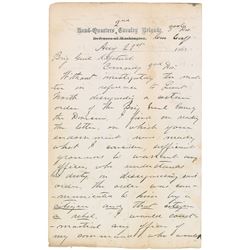 2nd
Head-Quarters, Cavalry Brigade, 3rd Div
Defences of Washington, Cav Corps
Aug 29th 186
Brig Genl
Comdg 3rd Div
Without investigating the mat-
ter in reference to Lieut
North disregarding a certain
order of the Brig Genl Comdg
the Division, I find on reading
the letter, on which your
endorsement was made,
what I consider sufficient
grounds to warrant any
officer, who understands
his duty, in disregarding such
order, the order was com-
municated to him by a
citizen and that citizen
a rebel. I would court
martial any officer in
my command who would